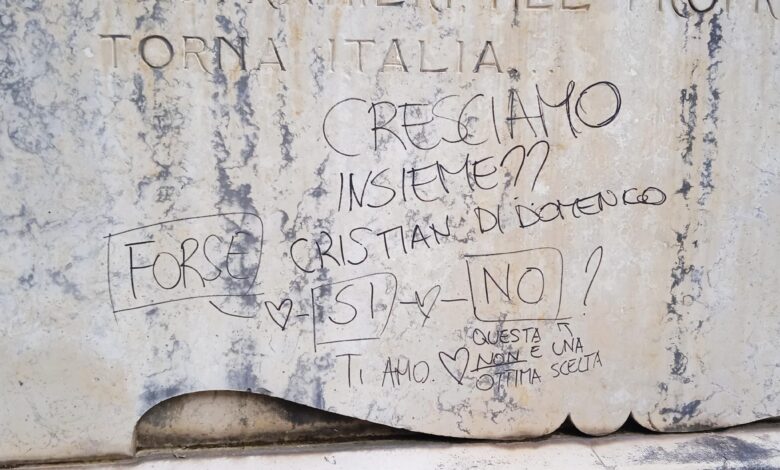 NEL PROPR
TORNA ITALIA...
CRESCIAMO
INSIEME??
CRISTIAN DI DOMENICO
FORSE SI NO ?
TI AMO.
QUESTA
NON È UNA
OTTIMA SCELTA